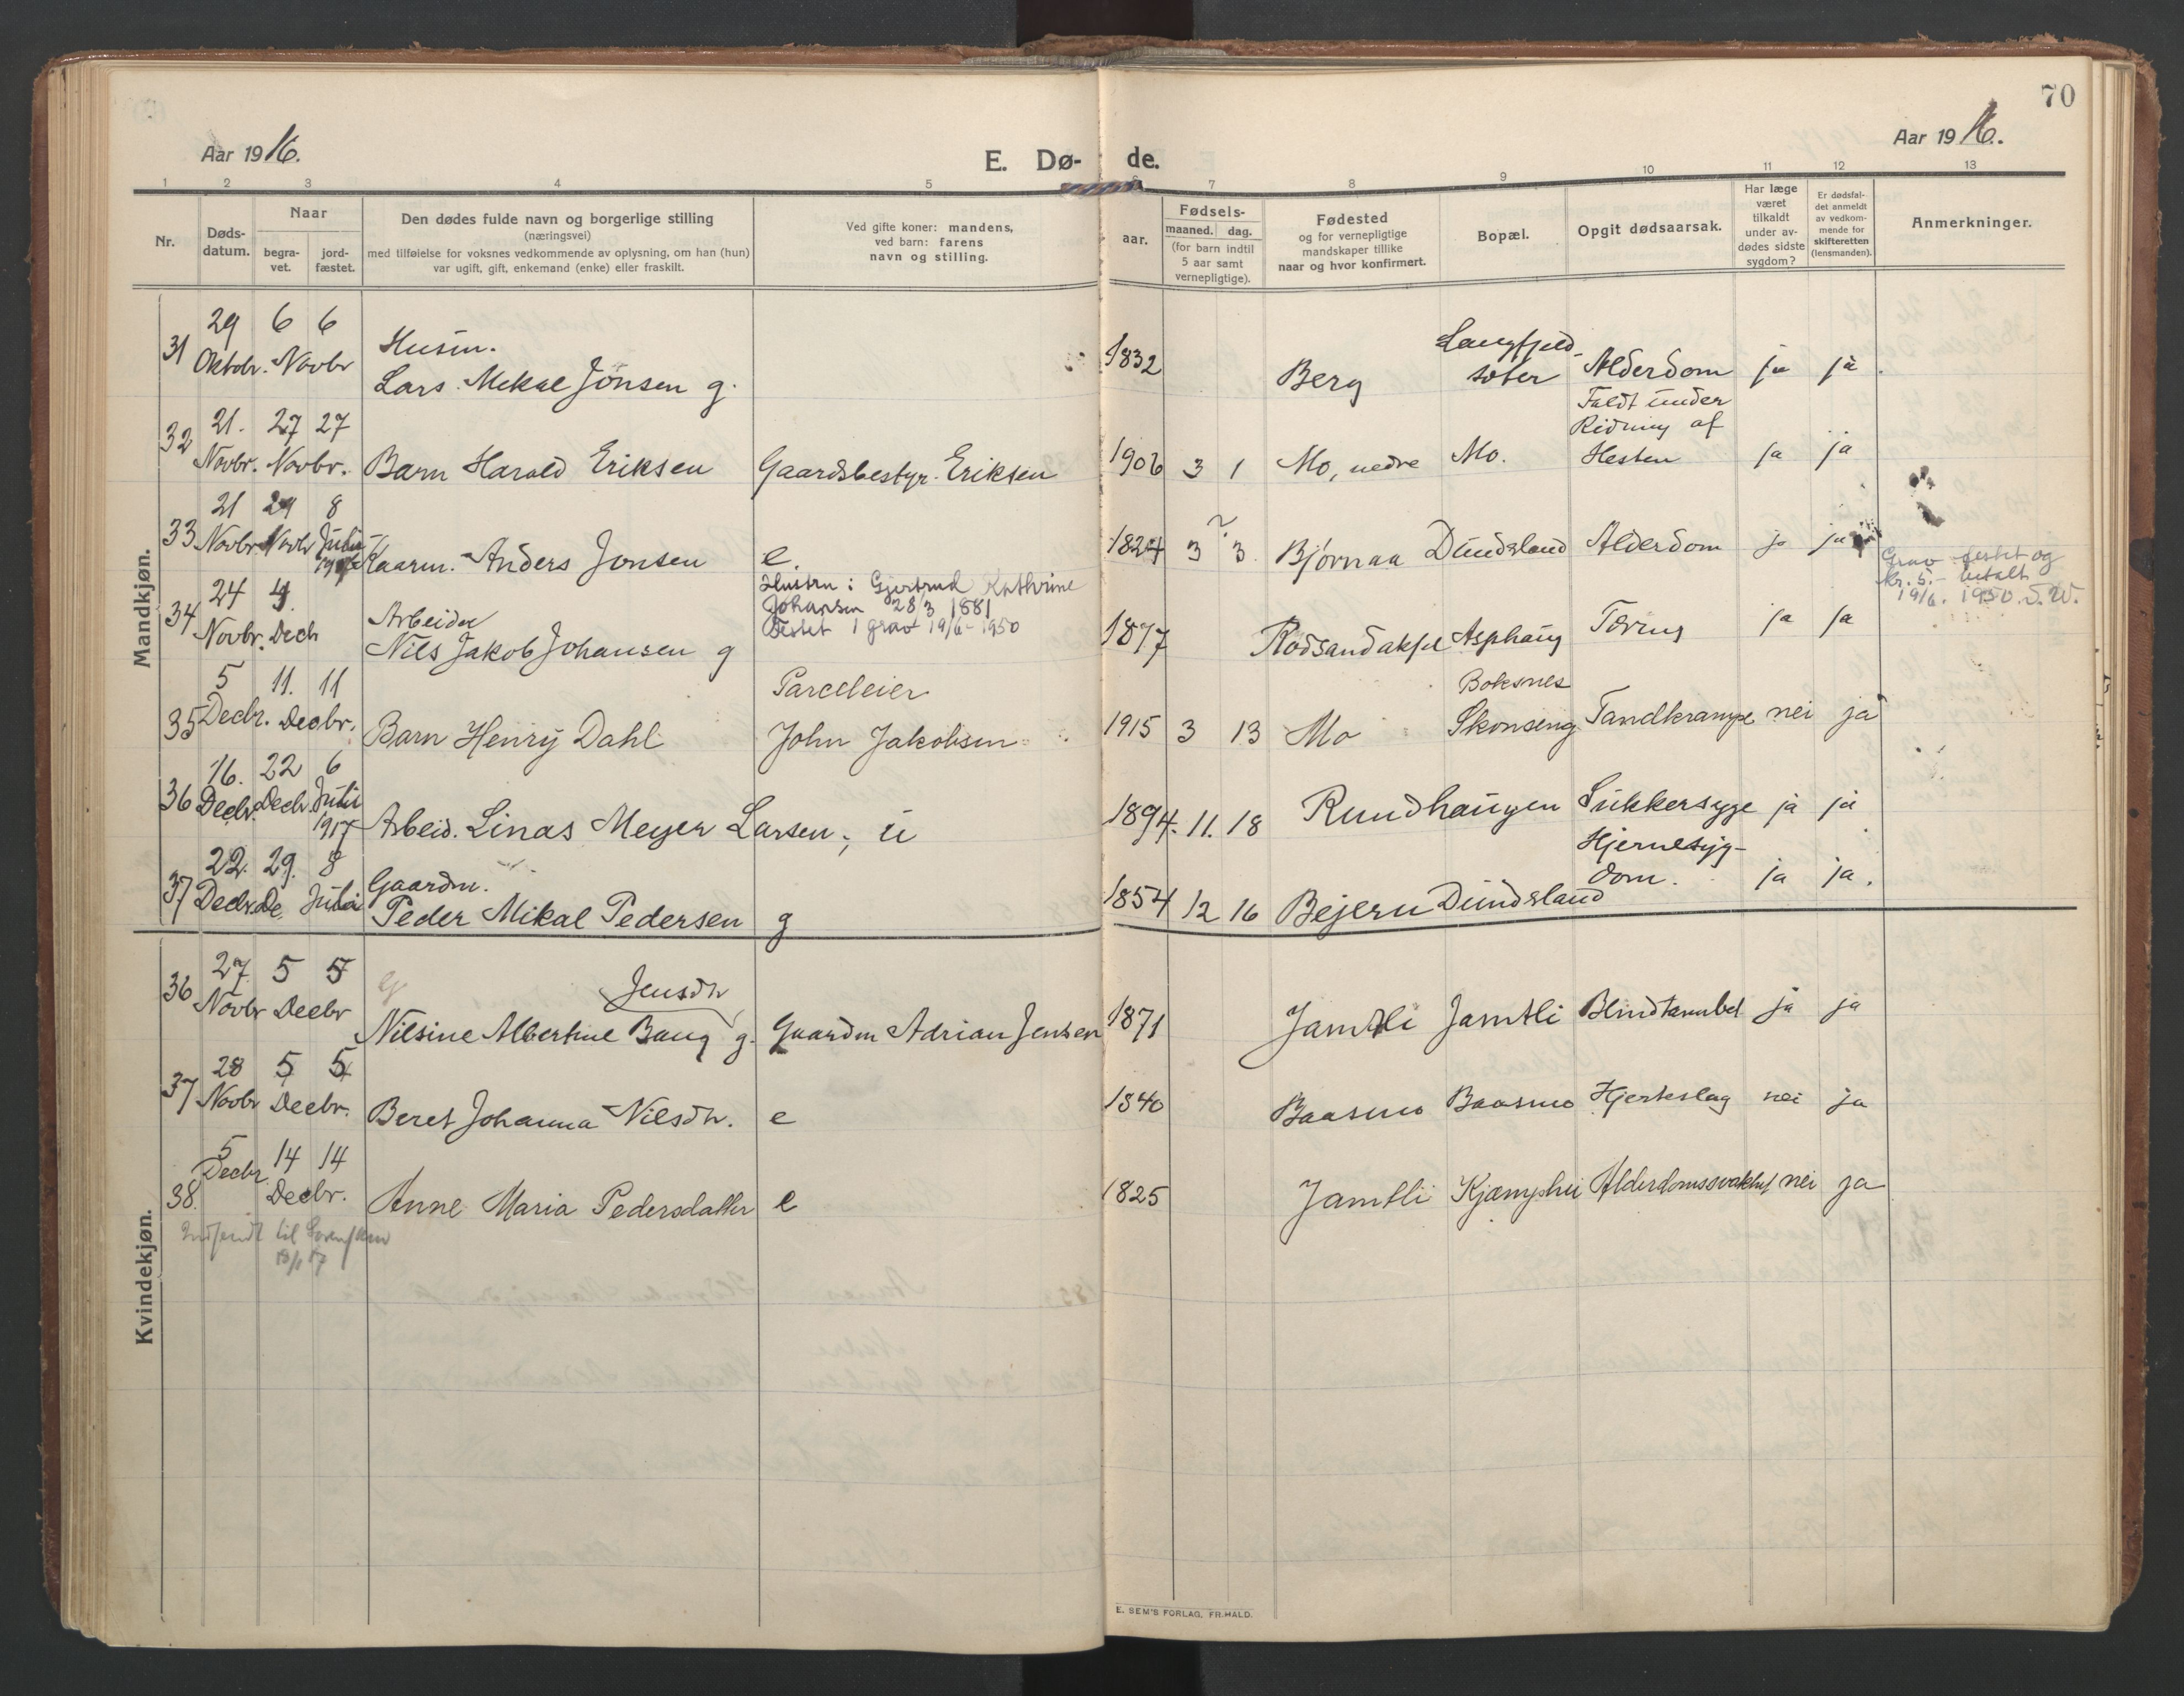 70
Aar 1916.
E. Dø- de.
Aar 1916.
1 2 3 4 5 6 7 8 9 10 11 12 13
Nr.
Døds-
datum.
Naar
begra-
vet.
jord-
fæstet.
Den dødes fulde navn og borgerlige stilling
(næringsvei)
med tilføielse for voksnes vedkommende av oplysning, om han (hun)
var ugift, gift, enkemand (enke) eller fraskilt.
Ved gifte koner: mandens,
ved barn: farens
navn og stilling.
aar.
Fødsels-
maaned. dag.
(for barn indtil
5 aar samt
vernepligtige).
Fødested
og for vernepligtige
mandskaper tillike
naar og hvor konfirmert.
Bopæl.
Opgit dødsaarsak.
Har læge
været
tilkaldt
under av-
dødes sidste
sygdom?
Er dødsfal-
det anmeldt
av vedkom-
mende for
skifteretten
(lensmanden).
Anmerkninger.
Mandkjøn.
29 6 6
31 Oktobr. Novbr
Husm.
Lars Mekal Jonsen g.
1832 Berg
Langfjeld-
sæter
Alderdom ja ja
21. 27 27
32 Novbr. Novbr.
Barn Harald Eriksen Gaardsbestyr. Eriksen
1906 3 1 Mo, nedre Mo.
Faldt under
Ridning af
Hesten ja ja
21 29 8
33 Novbr Novbr Juli
Kaarm. Anders Jonsen e.
1824 3 ? 3. Bjørnaa Dundsland Alderdom ja ja
24 4.
34 Novbr. Dech
Arbeider
Nils Jakob Johansen g
Hustru: Gjertrud Kathrine
Johansen 28/3 1881
Festet 1 grav 19/6-1950
1877 Rødsandaksel Asphaug Tæring ja ja
Grav festet og
kr. 5.- betalt
19/6. 1950. S.W.
5 11. 11
35 Decbr. Decbr.
Barn Henry Dahl
Parceleier
John Jakobsen
1915 3 13 Mo
Boksnes
Skonseng
Tandkrampe nei ja
16. 22 6
36 Decbr. Decbr. Juli
1917
Arbeid. Linas Meyer Larsen, u
1894. 11. 18 Rundhaugen Sukkersyge ja ja
22. 29. 8
37 Decbr. De. Juli
Gaardm.
Peder Mikal Pedersen g
1854 12 16 Bejern Dundsland
Hjernesyg-
dom. ja ja.
Kvindekjøn.
27 5 5
36 Novbr Decbr
Jensdtr
Nilsine Albertine Baug g. Gaardm Adrian Jensen
1871 Jamtli Jamtli Blindtarmbet ja ja
28 5 5
37 Novbr Decbr.
Beret Johanna Nilsdtr. e
1840 Baasmo Baasmo Hjerteslag nei ja
5 14 14
Decbr Decbr.
38.
Anne Maria Pedersdatter e
1825 Jamtli Kjæmphei Alderdomssvakhet nei ja
Indsendt til Sorenskriv
13/1 17
E. SEM'S FORLAG, FR.HALD.